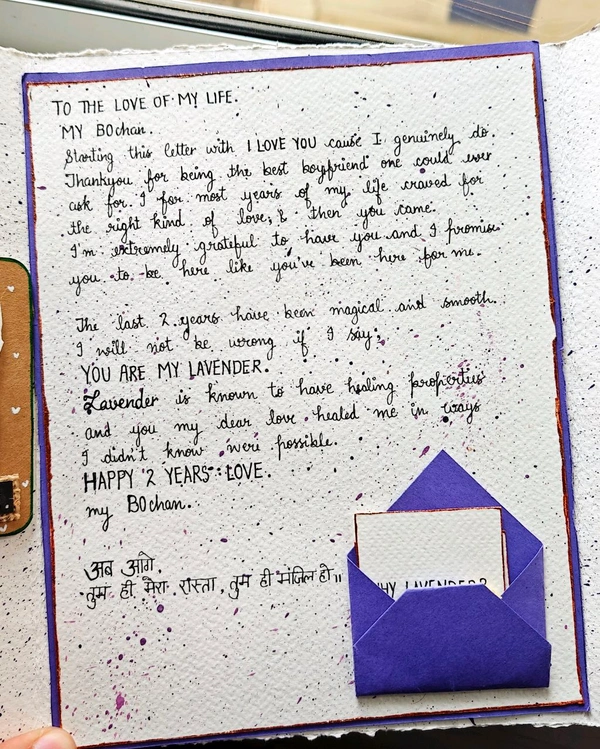 TO THE LOVE OF MY LIFE.
MY BOchan.
Starting this letter with I LOVE YOU cause I genuinely do.
Thankyou for being the best boyfriend one could ever
ask for. I for most years of my life craved for
the right kind of love, & then you came.
I'm extremely grateful to have you and I promise
you to be here like you've been here for me.
The last 2 years have been magical and smooth.
I will not be wrong if I say;
YOU ARE MY LAVENDER.
Lavender is known to have healing properties
and you my dear love healed me in ways
I didn't know were possible.
HAPPY 2 YEARS LOVE.
my BOchan.
अब आगे,
तुम ही मेरा रास्ता, तुम ही मंज़िल हो॥
WHY LAVENDER?